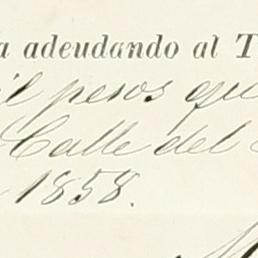 a adeudando al T
il pesos qu
Calle del
1858.